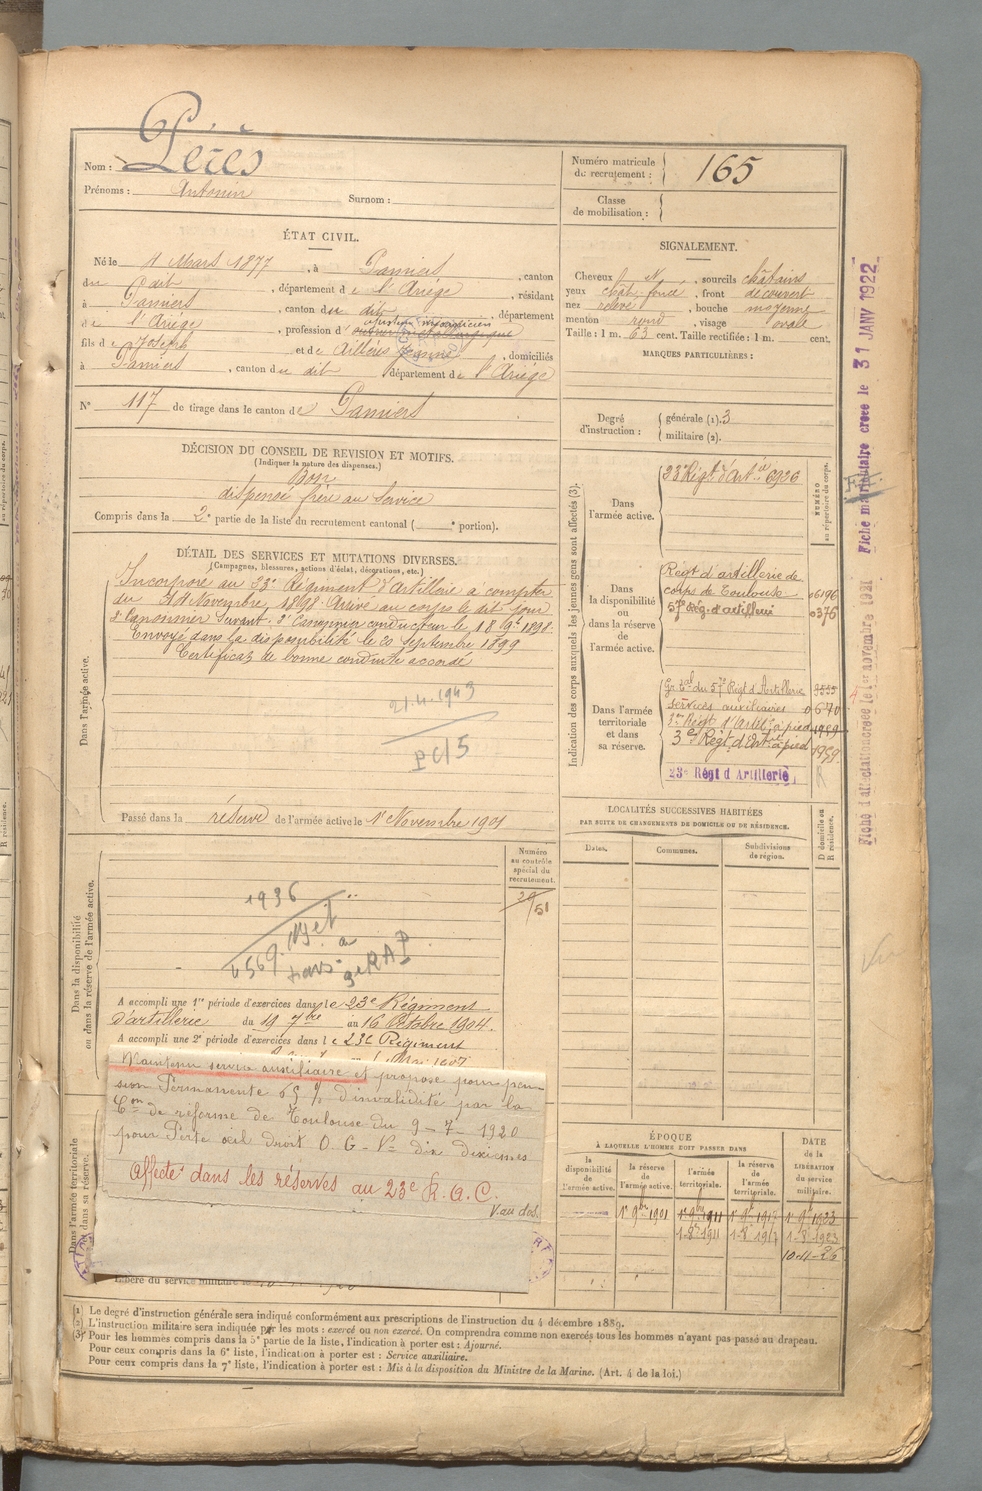 Nom : Pérès
Prénoms : Antonin Surnom :
ÉTAT CIVIL.
Né le 4 Mars 1877, à Pamiers, canton
du dit, département de l'Ariége, résidant
à Pamiers, canton du dit, département
de l'Ariége, profession d'
fils de Joseph et de Aillères Jeanne, domiciliés
à Pamiers, canton du dit département de l'Ariége
N° 117 de tirage dans le canton de Pamiers
DÉCISION DU CONSEIL DE REVISION ET MOTIFS.
(Indiquer la nature des dispenses.)
Bon
dispensé frère au Service
Compris dans la 2e partie de la liste du recrutement cantonal ( e portion).
DÉTAIL DES SERVICES ET MUTATIONS DIVERSES.
(Campagnes, blessures, actions d'éclat, décorations, etc.)
Dans l'armée active.
Incorporé au 23e Régiment d'Artillerie à compter
du 14 Novembre 1898. Arrivé au corps le dit jour
2e Canonnier Servant. 2e Canonnier conducteur le 18 9bre 1898.
Envoyé dans la disponibilité le 20 Septembre 1899
Certificat de bonne conduite accordé
21.4.1943
PCI5
Passé dans la réserve de l'armée active le 1er Novembre 1901
Dans la disponibilité
ou dans la réserve de l'armée active.
Numéro
au contrôle
spécial du
recrutement.
51
1936
4569.
A accompli une 1re période d'exercices dans le 23e Régiment
d'artillerie du 19 7bre au 16 Octobre 1904.
A accompli une 2e période d'exercices dans le 23e Régiment
Dans l'armée territoriale
et dans sa réserve.
Maintenu service auxiliaire et proposé pour pen-
sion Permanente 65 % d'invalidité par la
Con de réforme de Toulouse du 9-7-1920
pour Perte œil droit O.G - V= dix dixièmes
Affecté dans les réserves au 23e R.A.C.
V. au dos.
Libéré du service militaire le
Numéro matricule
du recrutement : 165
Classe
de mobilisation :
SIGNALEMENT.
Cheveux N, sourcils châtains
yeux chât. foncé, front découvert
nez relevé, bouche moyenne
menton rond, visage ovale
Taille : 1 m. 63 cent. Taille rectifiée : 1 m. cent.
MARQUES PARTICULIÈRES :
Degré
d'instruction :
générale (1). 3
militaire (2).
Indication des corps auxquels les jeunes gens sont affectés (3).
NUMÉRO
au répertoire du corps.
Dans
l'armée active.
23e Régt d'Artie 6926
Dans
la disponibilité
ou dans la réserve
de
l'armée active.
Régt d'artillerie de
corps de Toulouse 06196
57e Rég. d'artillerie 0376
Dans l'armée
territoriale
et dans
sa réserve.
Gr. tal du 57e Régt d'Artillerie 3555
services auxiliaires 0670
3e Régt d'Artie à pied
3e Régt d'Artie à pied 1959
23e Régt d'Artillerie
R
LOCALITÉS SUCCESSIVES HABITÉES
PAR SUITE DE CHANGEMENTS DE DOMICILE OU DE RÉSIDENCE.
Dates. Communes. Subdivisions
de région.
D domicile ou
R résidence.
ÉPOQUE
À LAQUELLE L'HOMME DOIT PASSER DANS
DATE
DE LA
LIBÉRATION
du service
militaire.
la
disponibilité
de
l'armée active.
la réserve
de
l'armée active.
l'armée
territoriale.
la réserve
de
l'armée
territoriale.
1er 9bre 1901 1er 9bre 1911 1er 9bre 1917 1er 9bre 1923
1-8bre 1911 1-8bre 1917 1-8bre 1923
10-11-26
Fiche d'affectation créée le 1er novembre 1921
Fiche matriculaire créée le 31 JANV 1922
(1) Le degré d'instruction générale sera indiqué conformément aux prescriptions de l'instruction du 4 décembre 1889.
(2) L'instruction militaire sera indiquée par les mots : exercé ou non exercé. On comprendra comme non exercés tous les hommes n'ayant pas passé au drapeau.
(3) Pour les hommes compris dans la 5e partie de la liste, l'indication à porter est : Ajourné.
Pour ceux compris dans la 6e liste, l'indication à porter est : Service auxiliaire.
Pour ceux compris dans la 7e liste, l'indication à porter est : Mis à la disposition du Ministre de la Marine. (Art. 4 de la loi.)